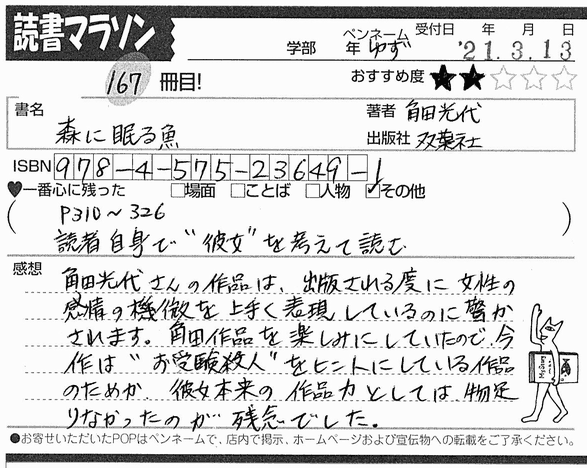 読書マラソン
学部 年 ペンネーム ゆず 受付日 年 月 日 '21.3.13
167 冊目! おすすめ度 ★★☆☆☆
書名 森に眠る魚
著者 角田光代
出版社 双葉社
ISBN 978-4-575-23649-1
♥一番心に残った □場面 □ことば □人物 ☑その他
(P310〜326
読者自身で"彼女"を考えて読む)
感想 角田光代さんの作品は、出版される度に女性の
感情の機微を上手く表現しているのに驚か
されます。角田作品を楽しみにしていたので、今
作は"お受験殺人"をヒントにしている作品
のためか、彼女本来の作品力としては、物足
りなかったのが残念でした。
●お寄せいただいたPOPはペンネームで、店内で掲示、ホームページおよび宣伝物への転載をご了承ください。